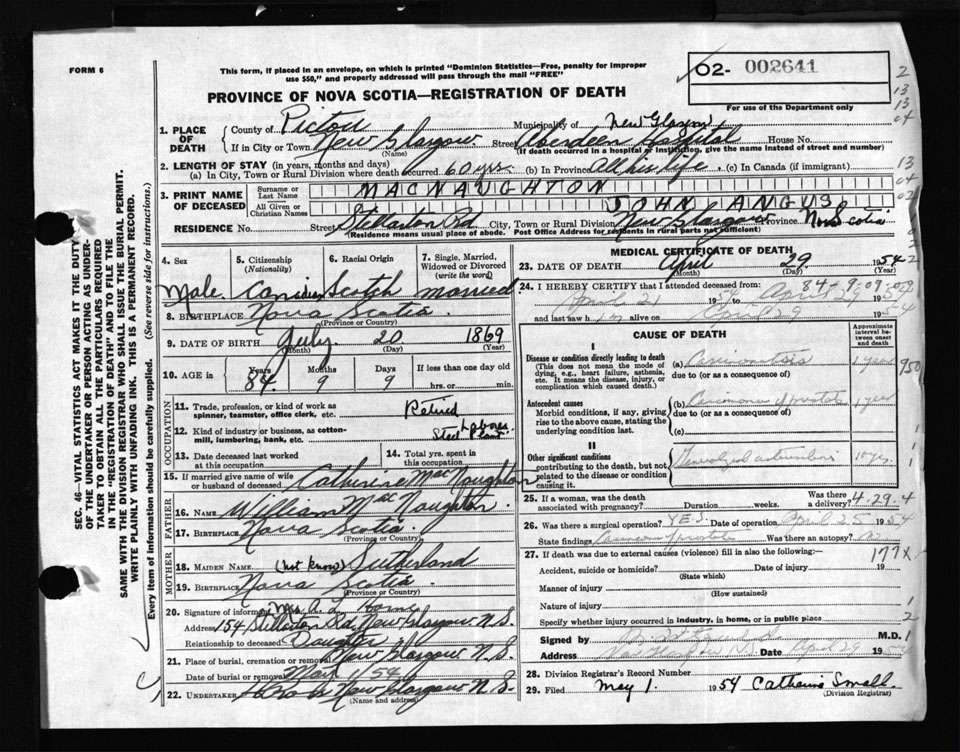 FORM 6
This form, if placed in an envelope, on which is printed "Dominion Statistics—Free, penalty for improper
use $50," and properly addressed will pass through the mail "FREE"
O2- 002641
For use of the Department only
PROVINCE OF NOVA SCOTIA—REGISTRATION OF DEATH
1. PLACE OF DEATH
County of Pictou Municipality of New Glasgow
If in City or Town New Glasgow. Street Aberdeen Hospital House No.
(Name) (If death occurred in a hospital or institution, give the name instead of street and number)
2. LENGTH OF STAY (in years, months and days)
(a) In City, Town or Rural Division where death occurred 60 yrs. (b) In Province All his life. (c) In Canada (if immigrant)
3. PRINT NAME OF DECEASED
Surname or Last Name MACNAUGHTON
All Given or Christian Names JOHN ANGUS
RESIDENCE No. Street Stellarton Rd City, Town or Rural Division New Glasgow Province Nova Scotia
(Residence means usual place of abode. Post Office Address for residents in rural parts not sufficient)
4. Sex 5. Citizenship (Nationality) 6. Racial Origin 7. Single, Married, Widowed or Divorced (write the word)
Male. Canadian Scotch married
8. BIRTHPLACE Nova Scotia.
(Province or Country)
9. DATE OF BIRTH July 20 1869
(Month) (Day) (Year)
10. AGE in Years Months Days If less than one day
84 9 9 hrs. or min.
OCCUPATION
11. Trade, profession, or kind of work as spinner, teamster, office clerk, etc. Retired
12. Kind of industry or business, as cotton-mill, lumbering, bank, etc. Labores Steel Plant
13. Date deceased last worked at this occupation
14. Total yrs. spent in this occupation
15. If married give name of wife or husband of deceased Catherine MacNaughton
FATHER
16. NAME William MacNaughton.
17. BIRTHPLACE Nova Scotia.
(Province or Country)
MOTHER
18. MAIDEN NAME (not know) Sutherland
19. BIRTHPLACE Nova Scotia.
(Province or Country)
20. Signature of informant Mrs
Address 154 Stellarton Rd. New Glasgow N.S.
Relationship to deceased Daughter
21. Place of burial, cremation or removal New Glasgow N.S.
Date of burial or removal May 1/54
22. UNDERTAKER New Glasgow N.S.
(Name and address)
MEDICAL CERTIFICATE OF DEATH
23. DATE OF DEATH April 29 1954
(Month) (Day) (Year)
24. I HEREBY CERTIFY that I attended deceased from:
84-9-09
April 21 1954 to April 1954
and last saw him alive on April 29 1954
CAUSE OF DEATH
Approximate interval between onset and death
I
Disease or condition directly leading to death (a) Carcinomatosis 1 year
(This does not mean the mode of dying, e.g., heart failure, asthenia, etc. It means the disease, injury, or complication which caused death.)
due to (or as a consequence of)
Antecedent causes (b) Carcinoma of prostate 1 year
Morbid conditions, if any, giving rise to the above cause, stating the underlying condition last.
due to (or as a consequence of)
(c)
II
Other significant conditions contributing to the death, but not related to the disease or condition causing it. 10 yrs.
25. If a woman, was the death associated with pregnancy? Duration weeks. Was there a delivery?
4.29.4
26. Was there a surgical operation? YES. Date of operation April 25 1954
State findings Was there an autopsy?
27. If death was due to external causes (violence) fill in also the following:— 177X
Accident, suicide or homicide? Date of injury 19
(State which)
Manner of injury
(How sustained)
Nature of injury
Specify whether injury occurred in industry, in home, or in public place
Signed by M.D.
Address New Glasgow N.S. Date April 29 1954
28. Division Registrar's Record Number
29. Filed May 1. 1954 Catharine Small.
(Division Registrar)
SEC. 46—VITAL STATISTICS ACT MAKES IT THE DUTY
OF THE UNDERTAKER OR PERSON ACTING AS UNDER-
TAKER TO OBTAIN ALL THE PARTICULARS REQUIRED
IN THE "REGISTRATION OF DEATH" AND TO FILE THE
SAME WITH THE DIVISION REGISTRAR WHO SHALL ISSUE THE BURIAL PERMIT.
WRITE PLAINLY WITH UNFADING INK. THIS IS A PERMANENT RECORD.
Every item of information should be carefully supplied. (See reverse side for instructions.)